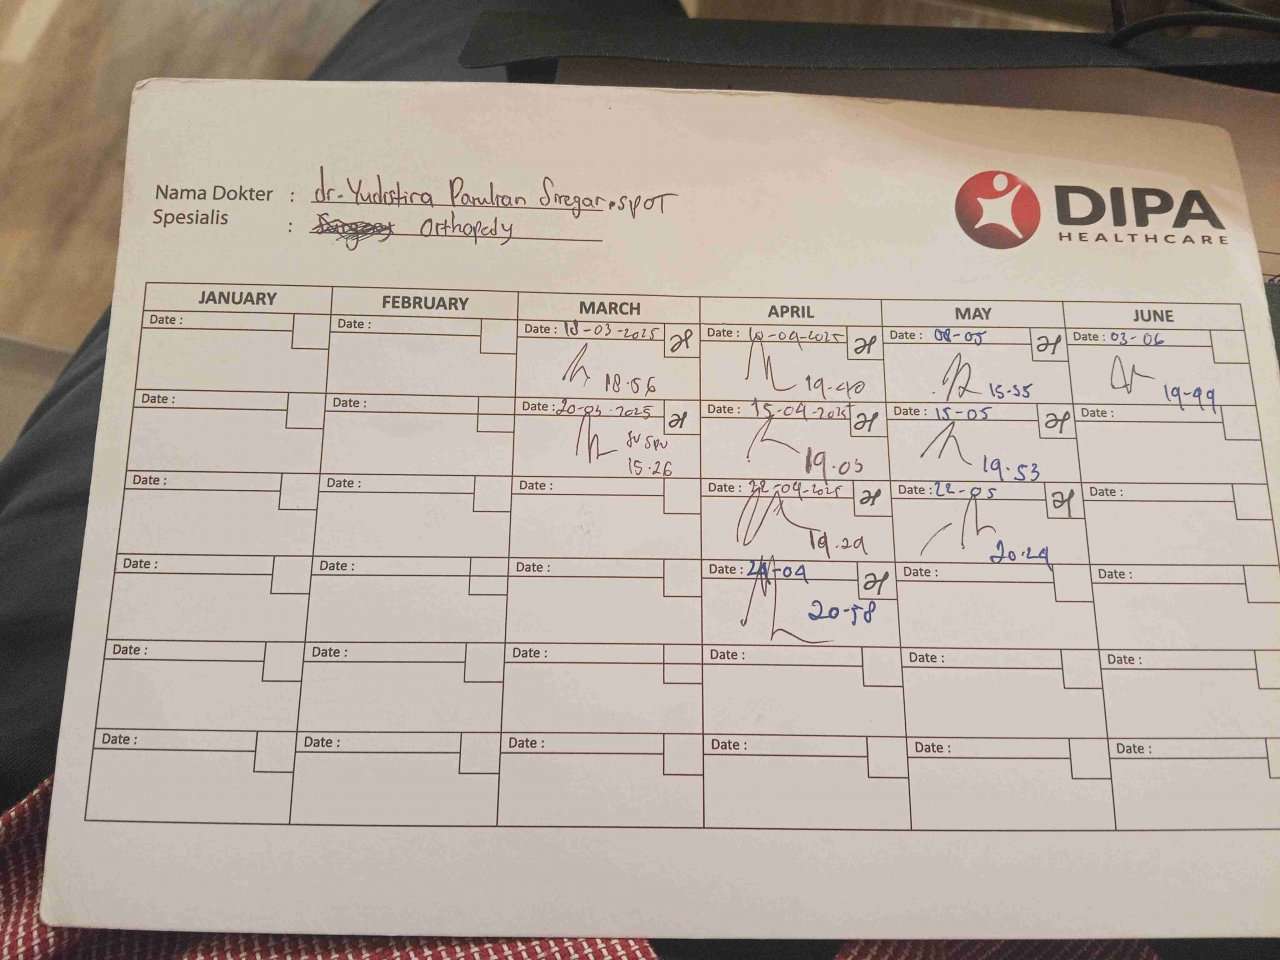 Nama Dokter : dr. Yudistira Parulian Siregar. SPOT
Spesialis : Orthopedy
DIPA
HEALTHCARE
JANUARY FEBRUARY MARCH APRIL MAY JUNE
Date : Date : Date : 18-03-2025 Date : 10-04-2025 Date : 08-05 Date : 03-06
18-56 19-40 15-55 19-49
Date : Date : Date : 20-03-2025 Date : 15-04-2025 Date : 15-05 Date :
15-26 19.03 19.53
Date : Date : Date : Date : 22-04-2025 Date : 22-05 Date :
19.29 20.29
Date : Date : Date : Date : 29-04 Date : Date :
20-58
Date : Date : Date : Date : Date : Date :
Date : Date : Date : Date : Date : Date :